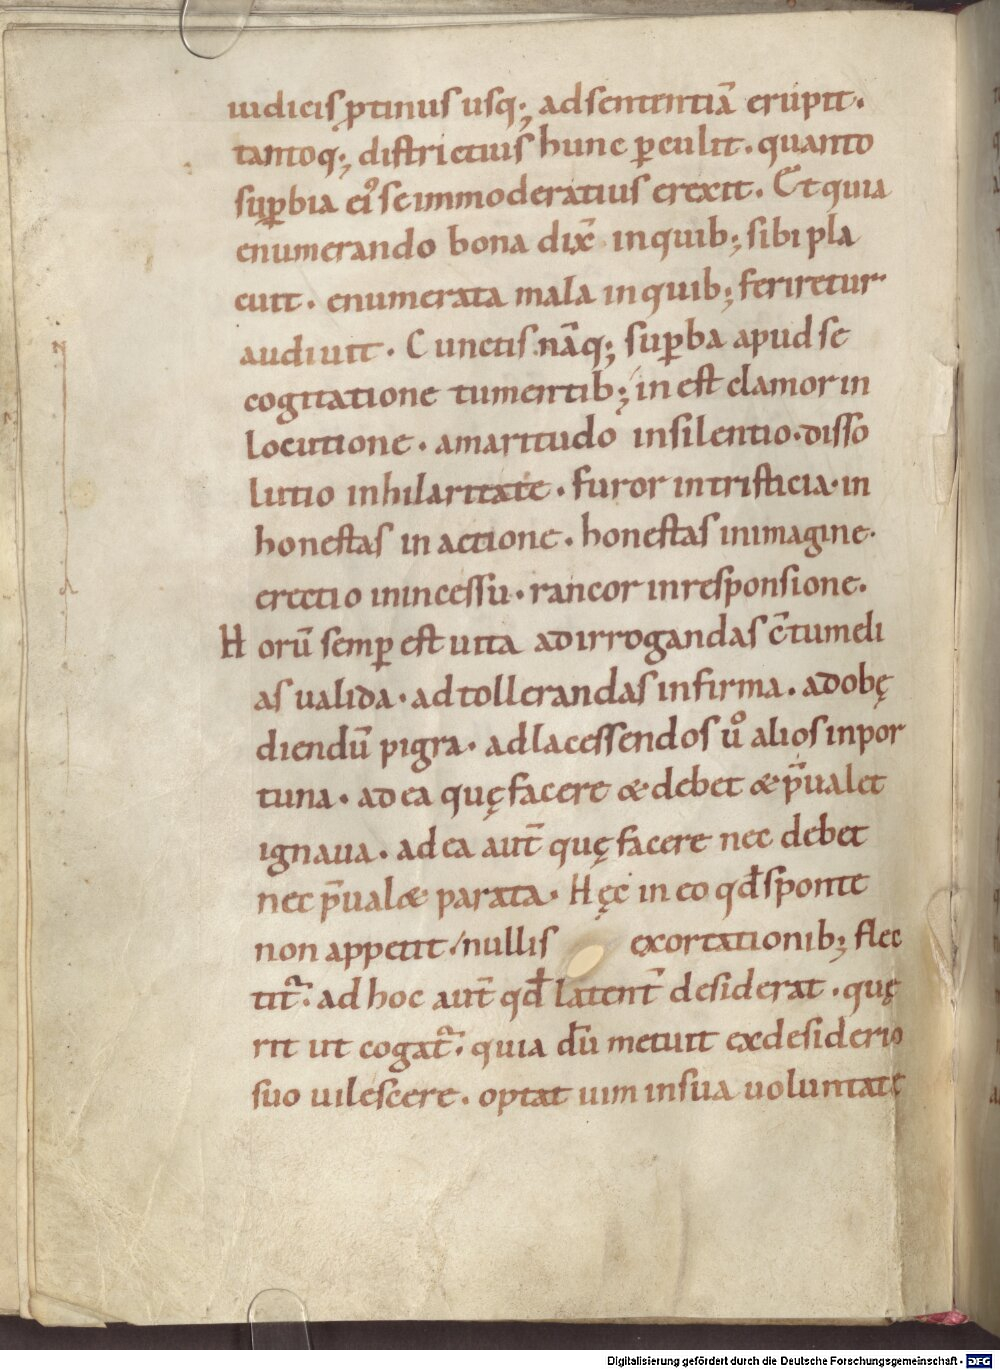 iudicis ꝓtinus usq; ad sententiā erupit.
tantoq; districtius hunc ꝑculit. quanto
suꝑbia ei᾿ se immoderatius erexit. Et quia
enumerando bona dix̄ inquib; sibi pla
cuit. enumerata mala inquib; feriretur
audiuit. Cunctis nāq; suꝑba apud se
cogitatione tumentib; inest clamor in
locutione. amaritudo insilentio. disso
lutio inhilaritate. furor intristicia. in
honestas in actione. honestas inimagine.
erectio inincessu. rancor inresponsione.
Horū semꝑ est uita adirrogandas c̄tumeli
as ualida. adtollerandas infirma. adobę
diendū pigra. adlacessendos ūo alios inpor
tuna. adea quę facere & debet & p̄ualet
ignaua. adea aut̄ quę facere nec debet
nec p̄ual& parata. Hęc in eo qđ sponte
non appetit nullis exortationib; flec
tit᷑. adhoc aut̄ qđ latent̄ desiderat. quę
rit ut cogat᷑. quia dū metuit exdesiderio
suo uilescere. optat uim insua uoluntate
Digitalisierung gefördert durch die Deutsche Forschungsgemeinschaft - DFG